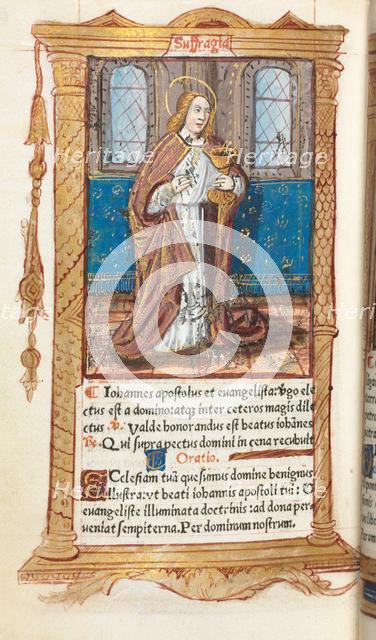 Suffragia
C Iohannes apostolus et euangelista: v̄go ele
ctus est a domino: atqz inter ceteros magis dile
ctus ℣. Valde honorandus est beatus iohānes
℟. Qui supra pectus domini in cena recubuit
Oratio.
Ecclesiam tuā quesumus domine benignus
illustra: vt beati iohannis apostoli tui
euangeliste illuminata doctrinis: ad dona per
ueniat sempiterna. Per dominum nostrum.
Heritage
Heritage
Images
Heritage
Heritage